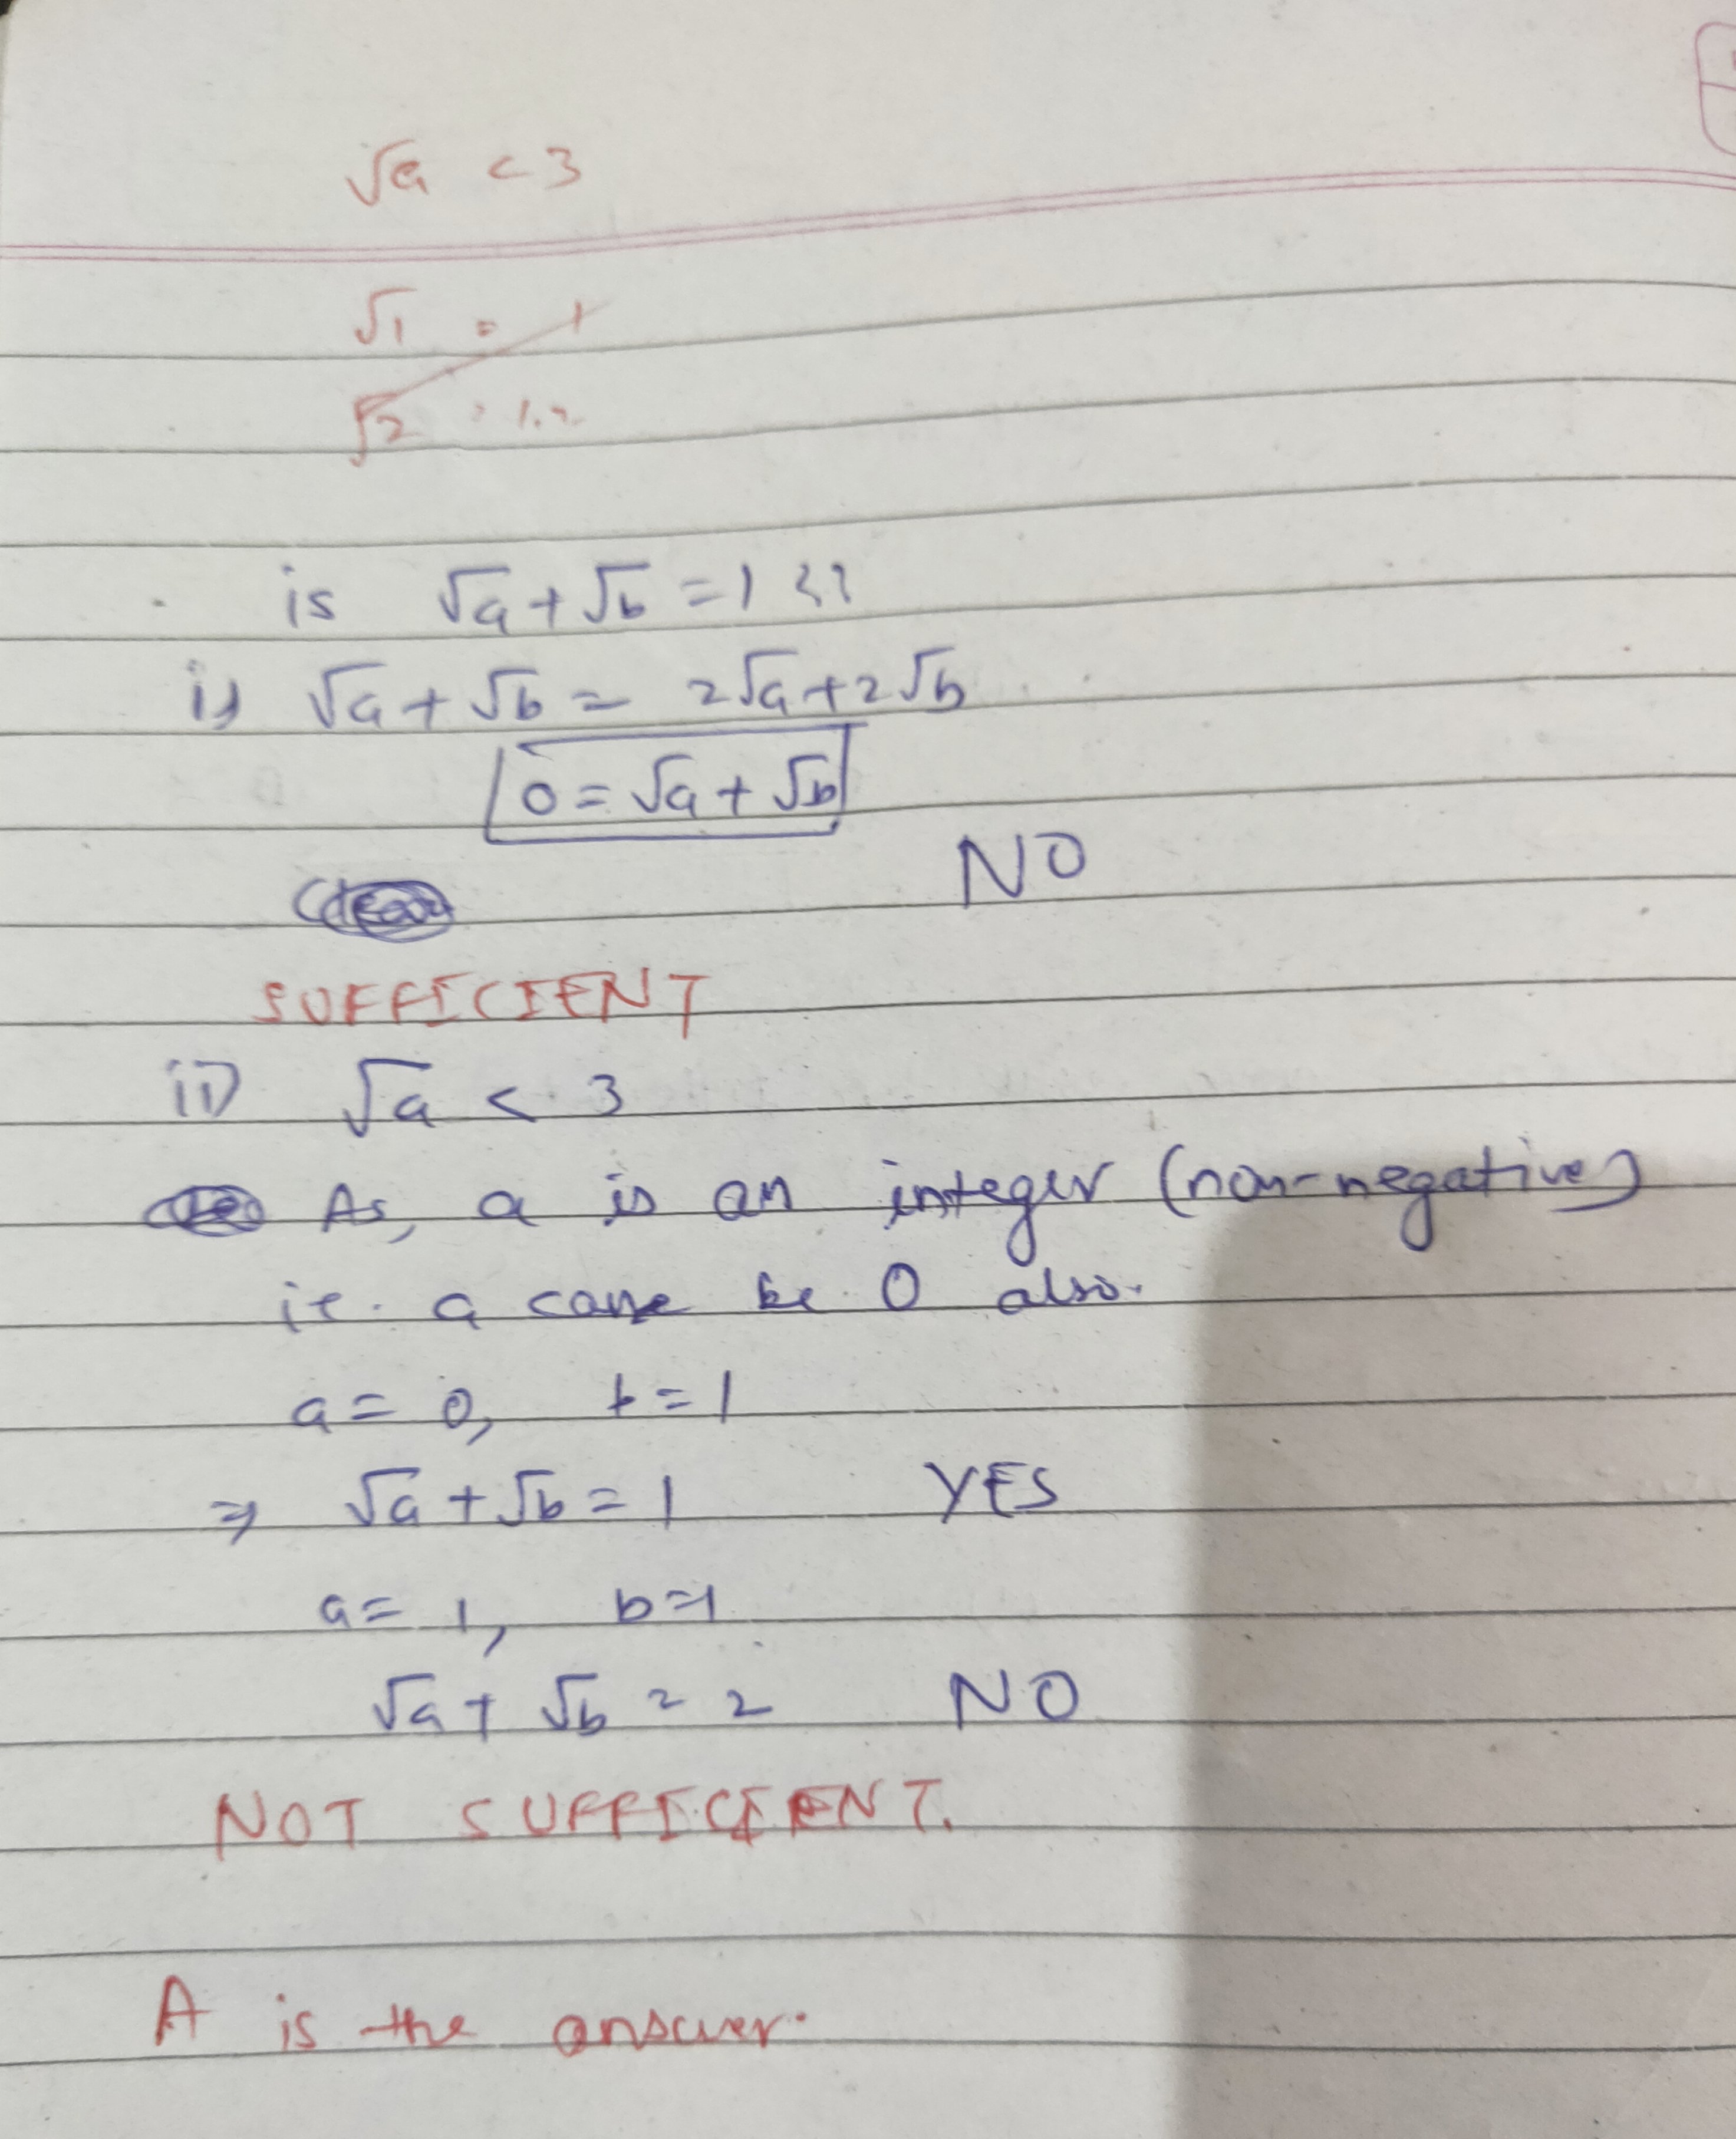 √a < 3
√1 = 1
√2 = 1.2
is √a + √b = 1 ??
i) √a + √b = 2√a + 2√b
0 = √a + √b
NO
SUFFICIENT
ii) √a < 3
As, a is an integer (non-negative)
ie. a cane be 0 also.
a = 0, b = 1
⇒ √a + √b = 1 YES
a = 1, b = 1
√a + √b = 2 NO
NOT SUFFICIENT.
A is the answer.